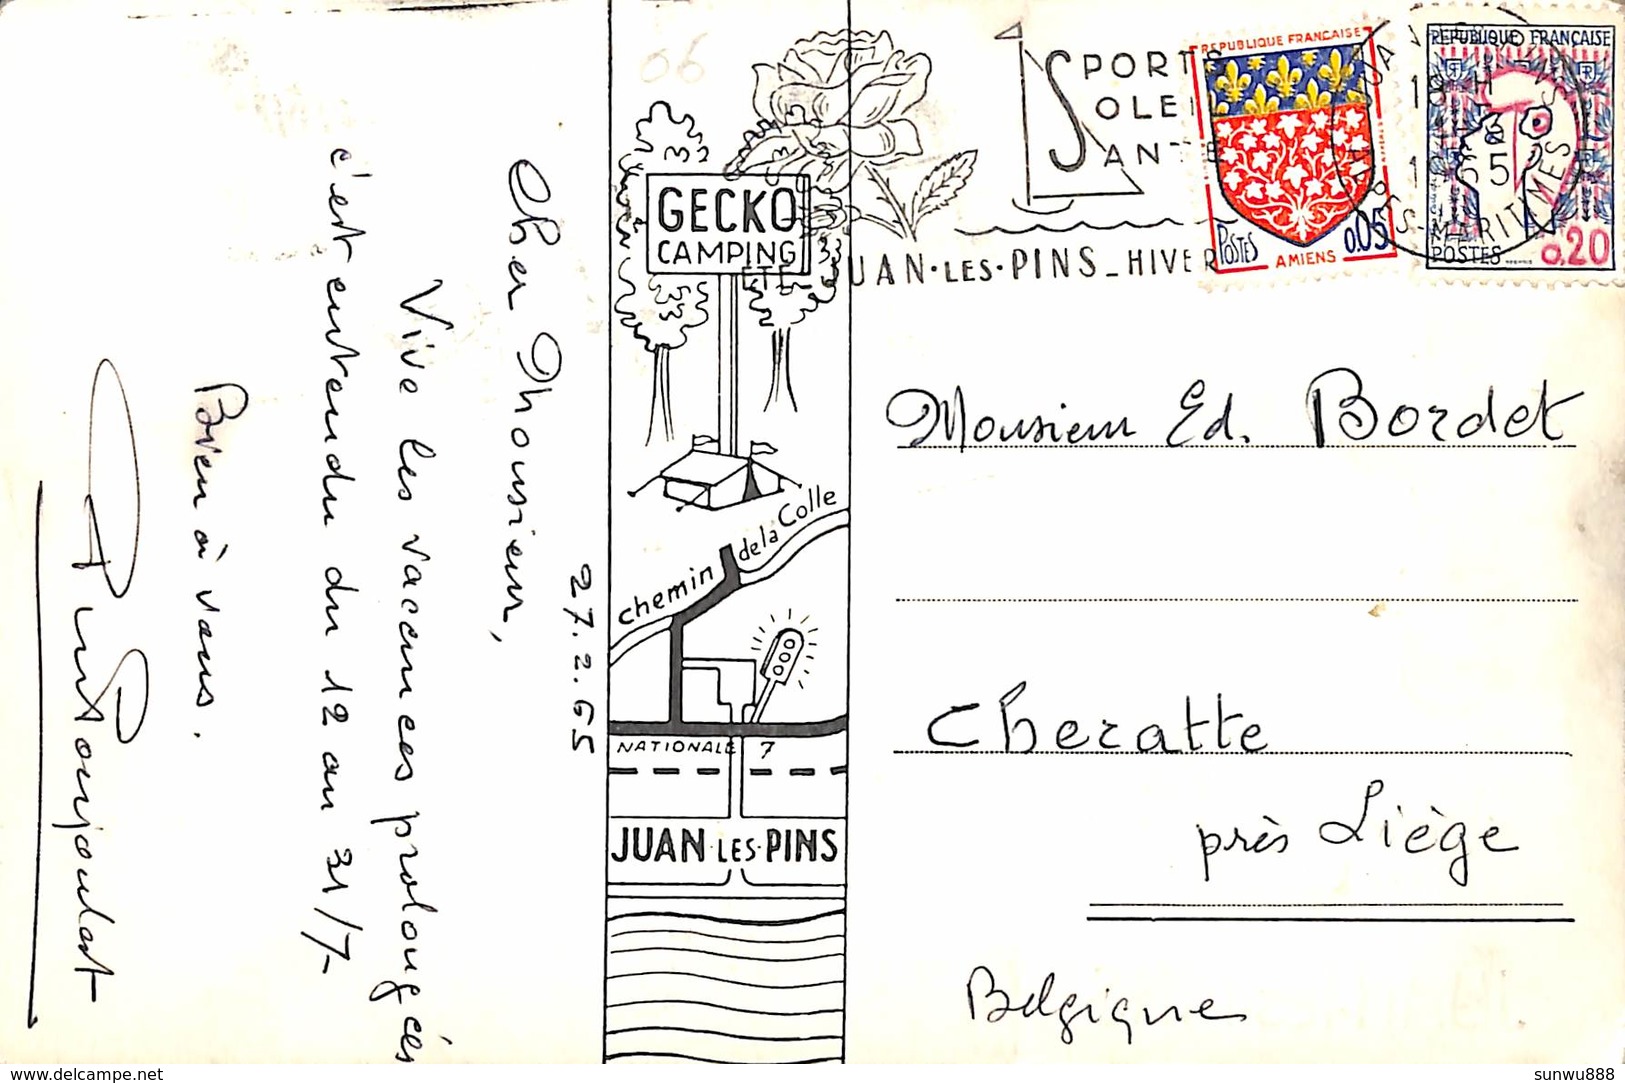 27.2.65
Cher Monsieur,
Vive les vacances prolongées
c'est entendu du 12 au 31/7-
Bien à vous.
06
GECKO
CAMPING
Chemin de la Colle
NATIONALE 7
JUAN·LES·PINS
SPORTS
SOLEI
SANTE
ÉTÉ JUAN·LES·PINS_HIVER
REPUBLIQUE FRANCAISE
POSTES
0,05
AMIENS
REPUBLIQUE FRANÇAISE
POSTES
0.20
18 H
1965
ALPES-MARITIMES
Monsieur Ed. Bordet
Cheratte
près Liège
Belgique
delcampe.net
sunwu888